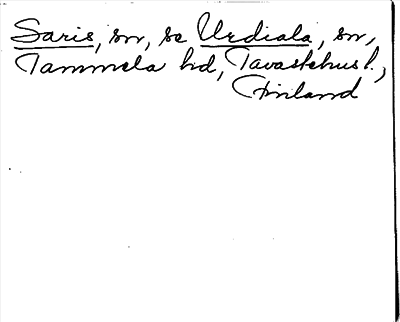 Saris, sn, se Urdiala, sn,
Tammela hd, Tavastehus l.,
Finland